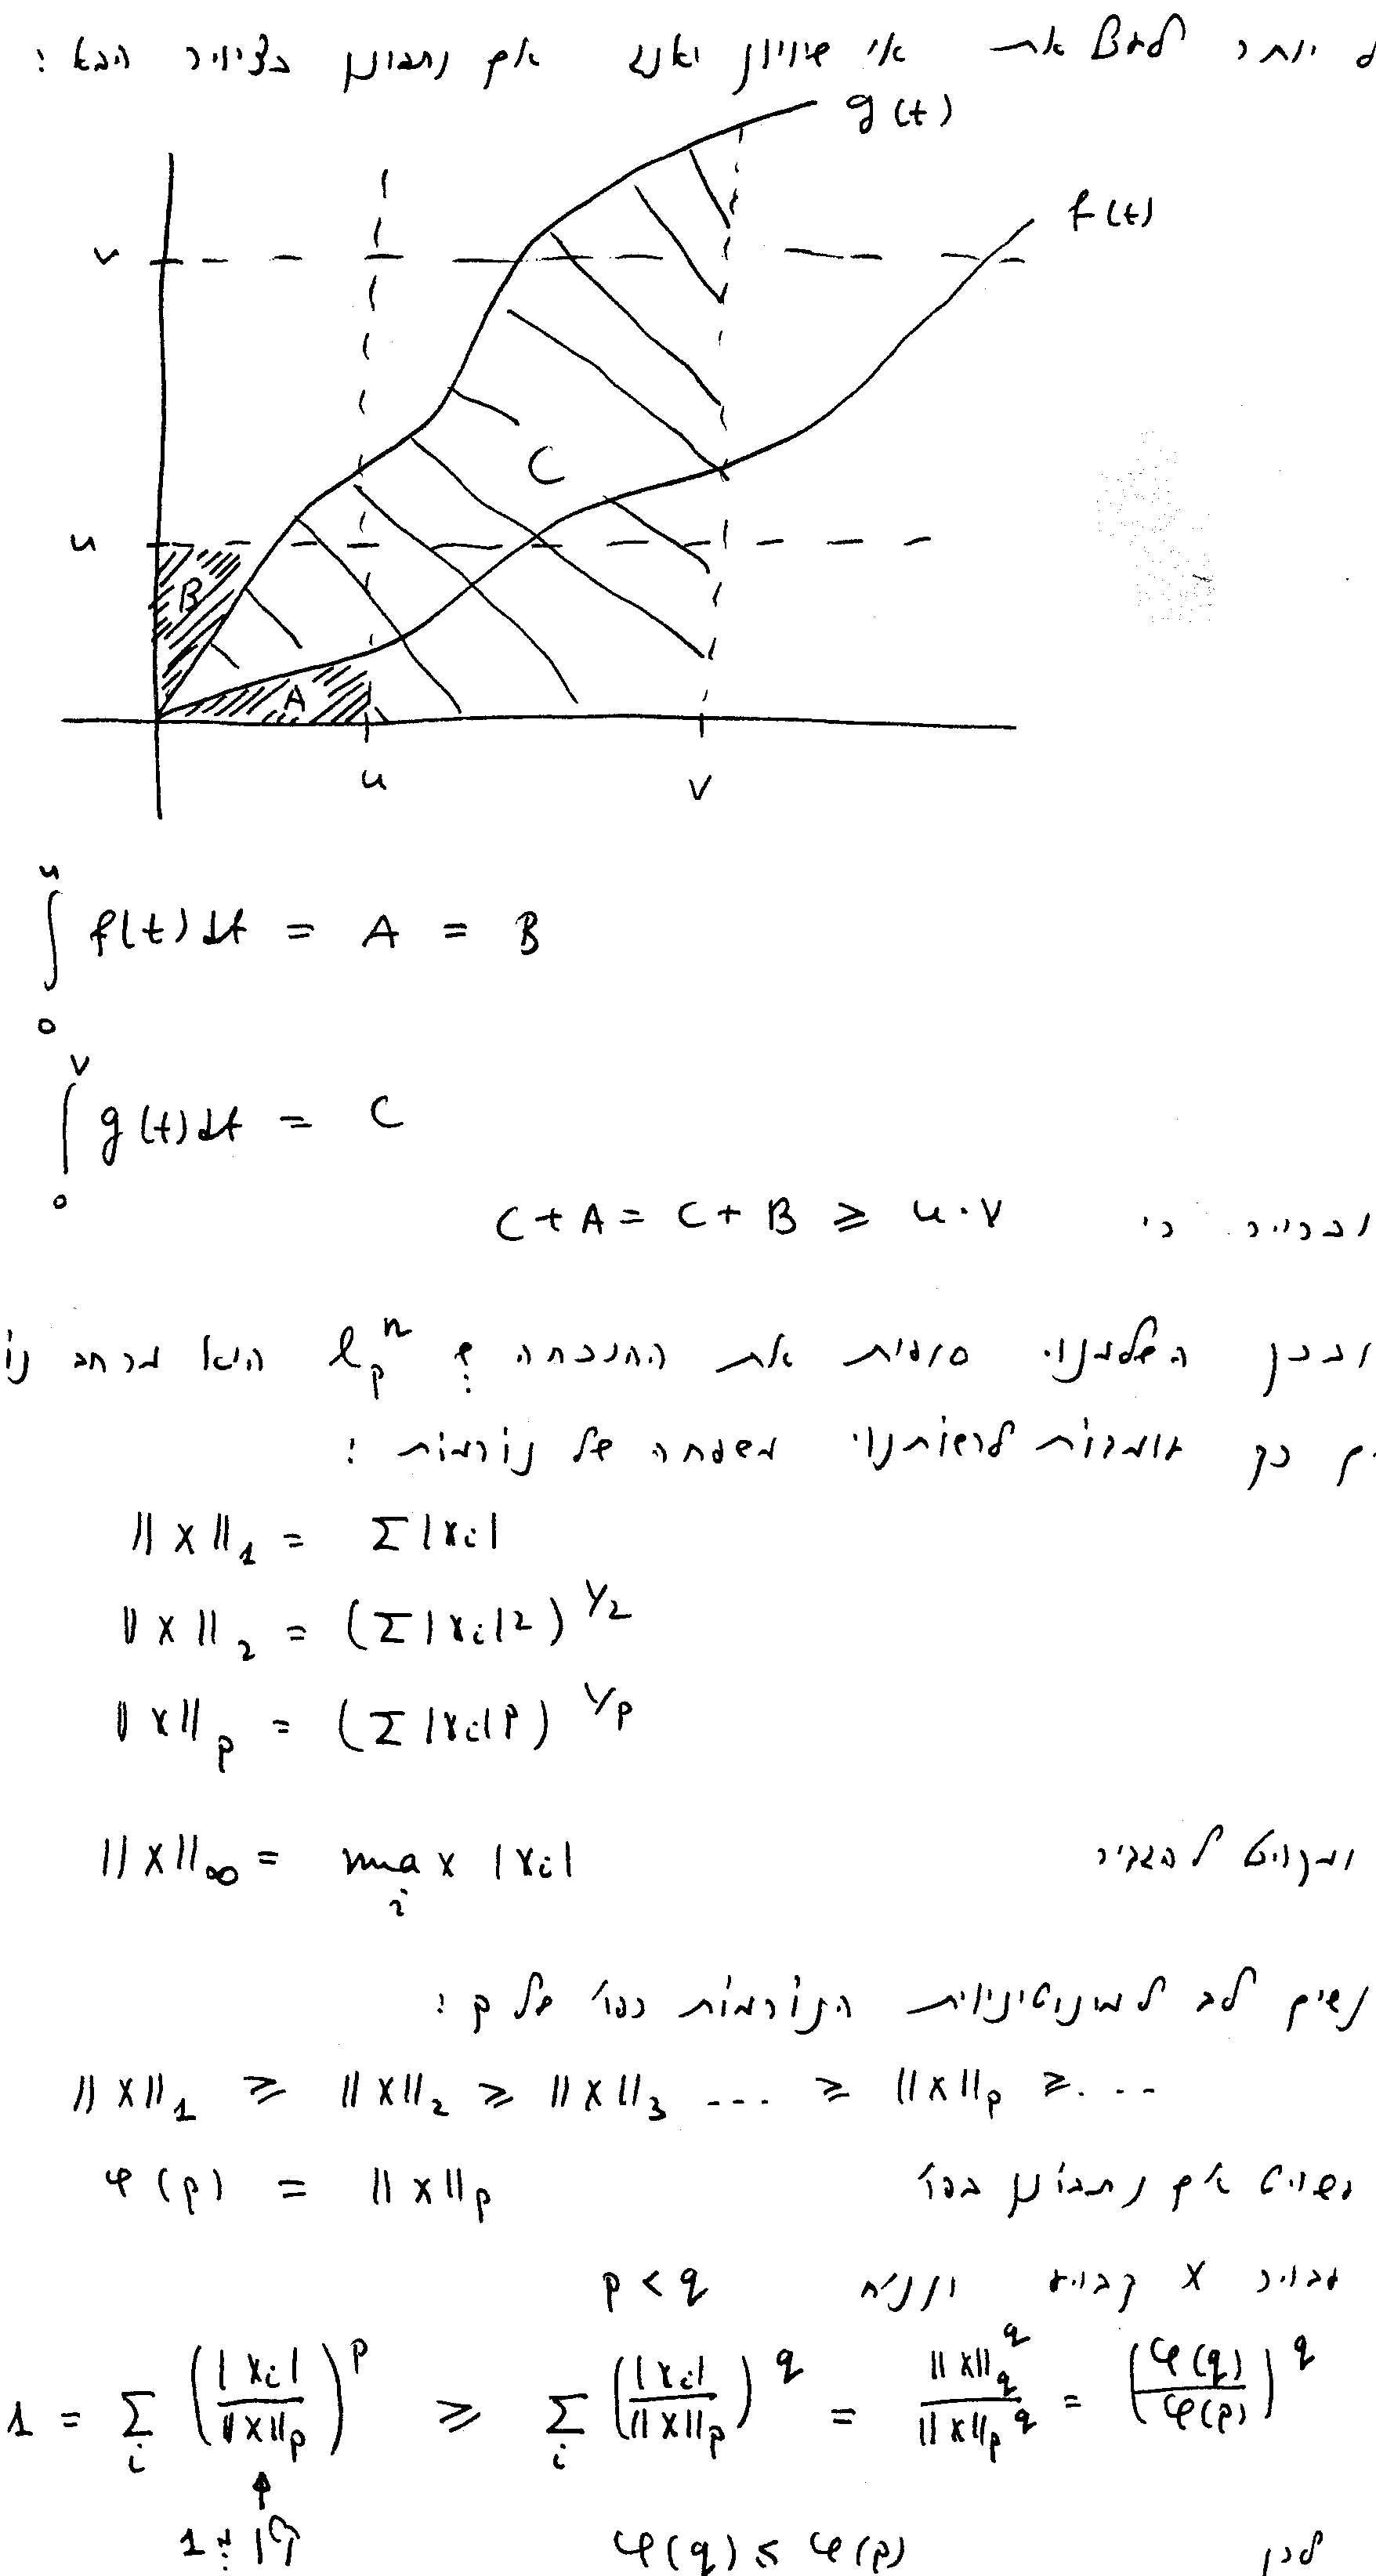 יותר לדעת את אי שוויון יאנג אם נתבונן בציור הבא :
g(t)
f(t)
v
C
u
B
A
u
v
∫₀ᵘ f(t)dt = A = B
∫₀ᵛ g(t)dt = C
וברור כי C + A = C + B ≥ u·v
ובכן השלמנו סופית את ההוכחה ש: ℓₚⁿ הוא מרחב
כך עומדות לרשותנו משפחה של נורמות :
||x||₁ = Σ|xᵢ|
||x||₂ = (Σ|xᵢ|²)^1/2
||x||ₚ = (Σ|xᵢ|ᵖ)^1/p
ומקובל להגדיר ||x||∞ = max_i |xᵢ|
נשים לב למונוטוניות הנורמות כפו' של p :
||x||₁ ≥ ||x||₂ ≥ ||x||₃ ... ≥ ||x||ₚ ≥ ...
אם נתבונן בפו' φ(p) = ||x||ₚ
עבור x קבוע ונניח p < q
1 = Σ_i (|xᵢ|/||x||_p)^p ≥ Σ_i (|xᵢ|/||x||_p)^q = ||x||_q^q / ||x||_p^q = (φ(q)/φ(p))^q
↑
קטן מ: 1
לכן φ(q) ≤ φ(p)